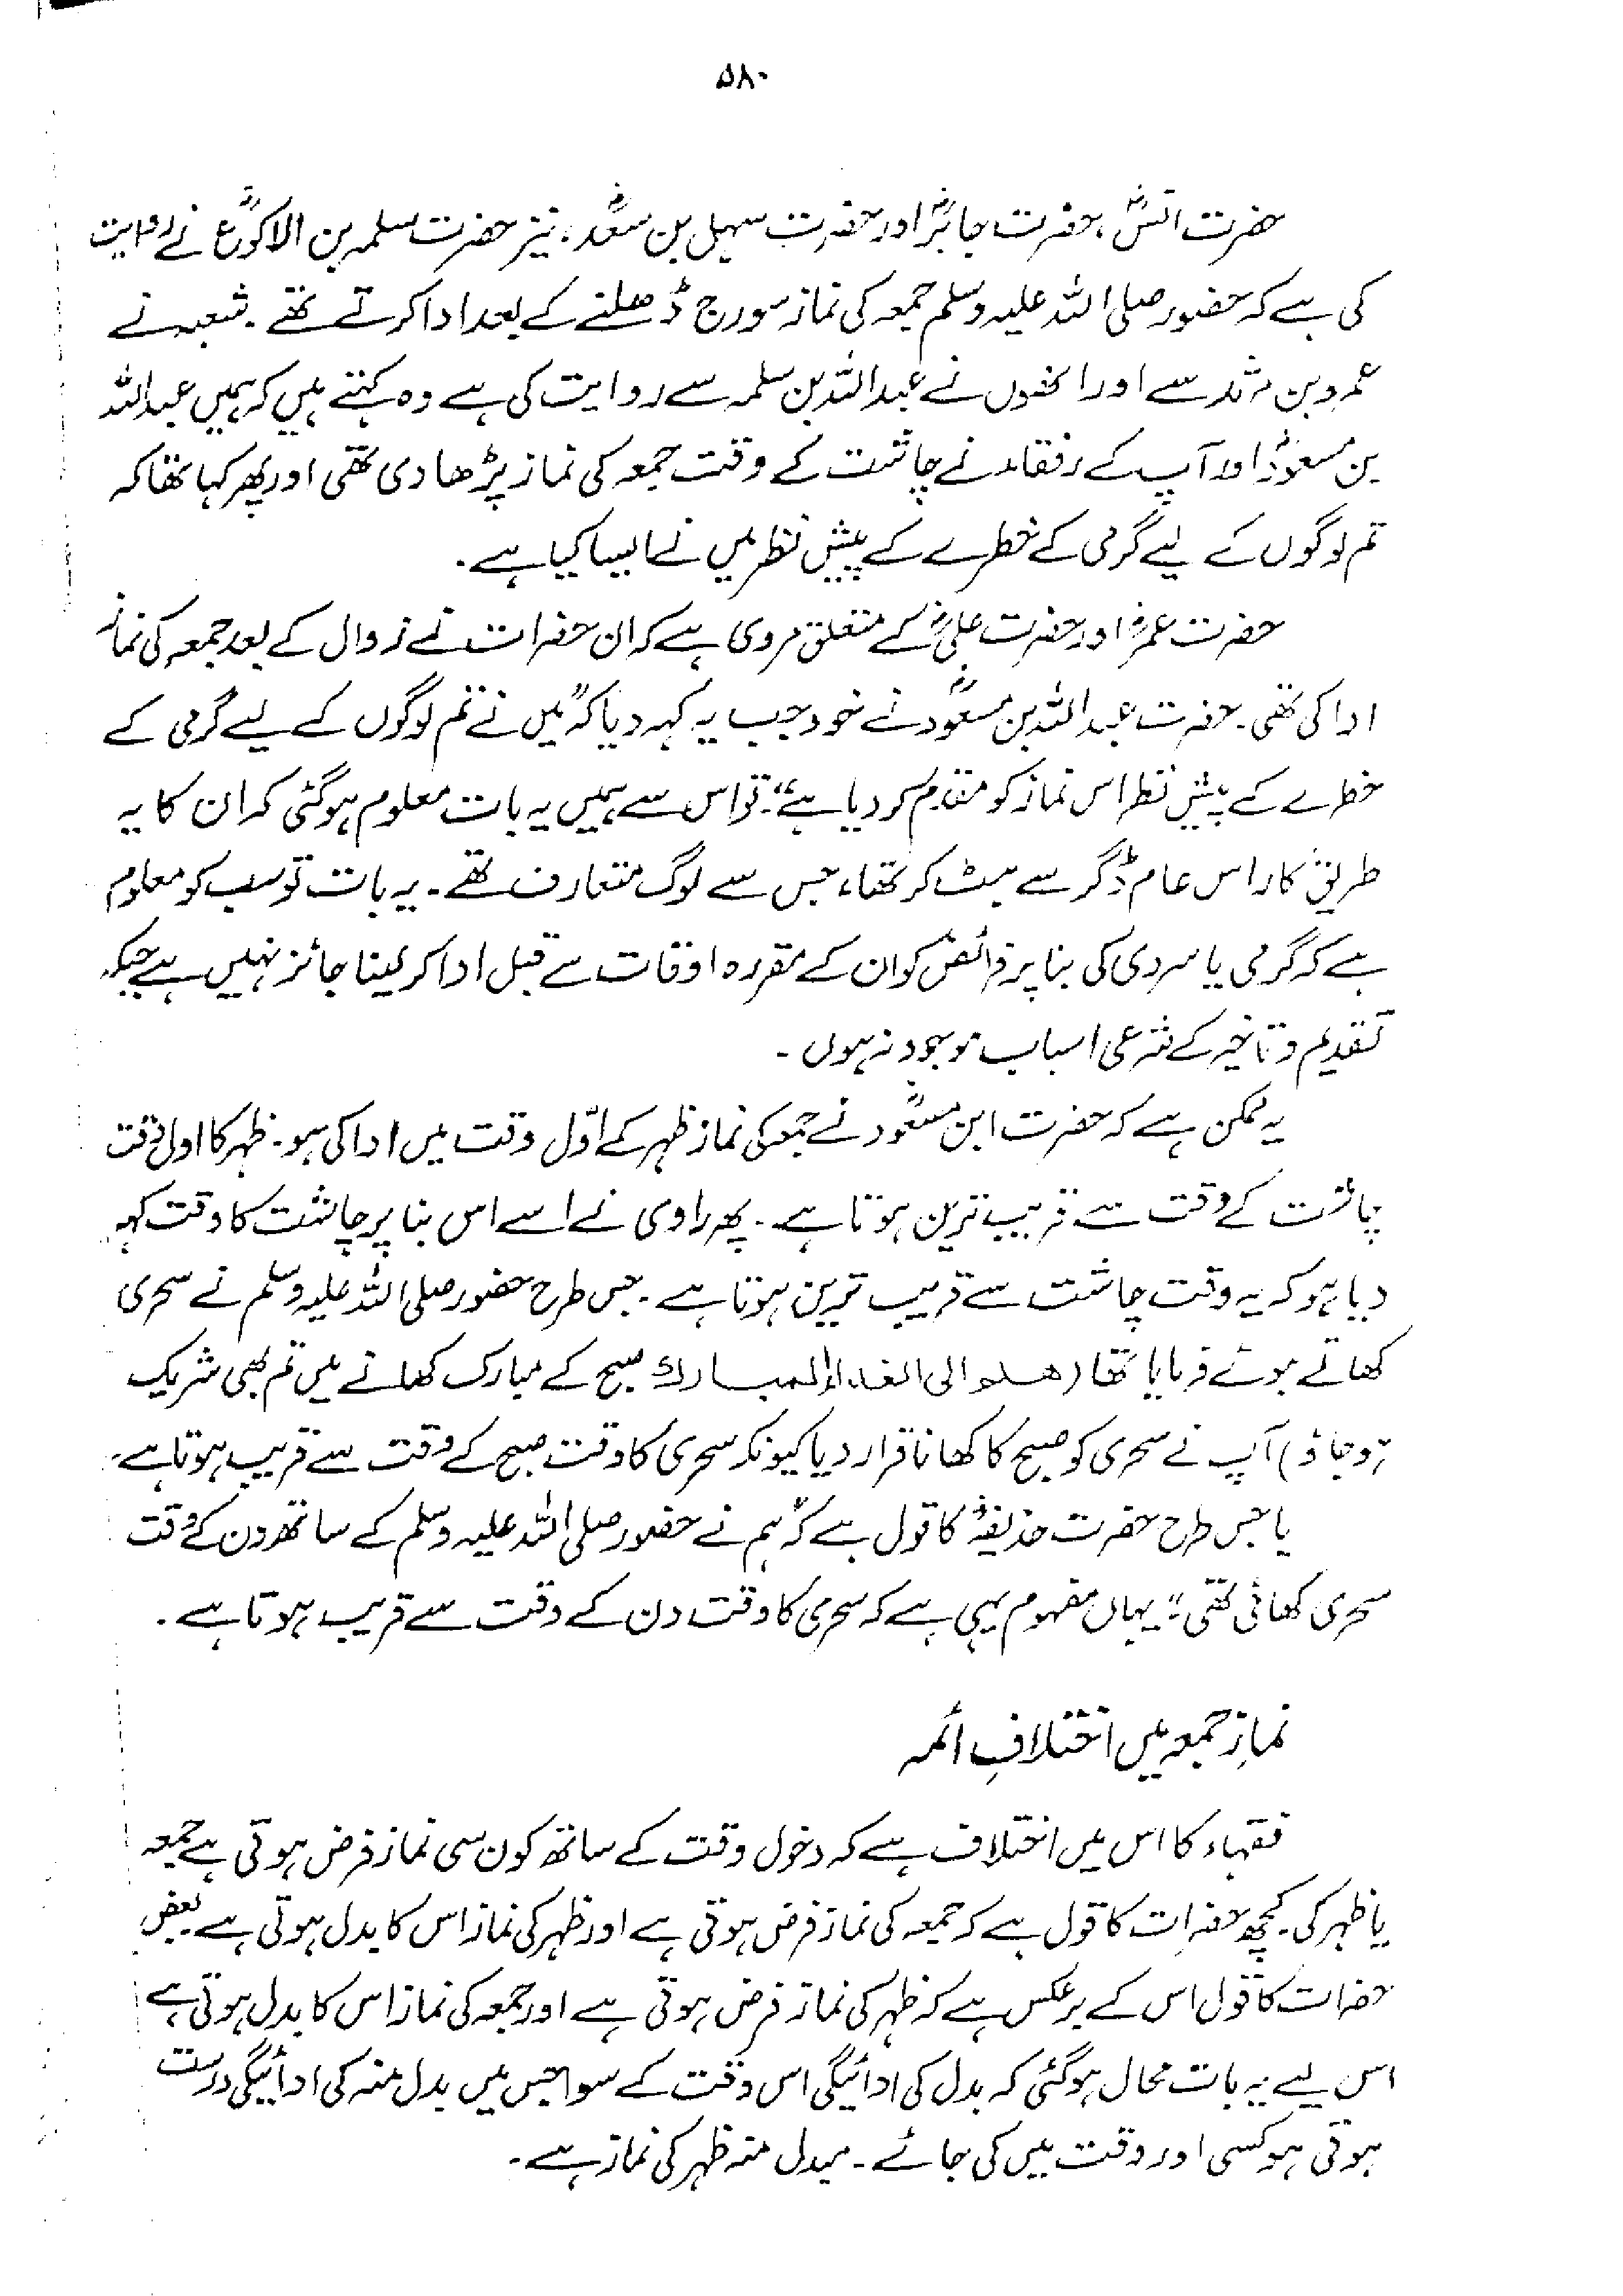 ۵۸۰
حضرت انسؓ، حضرت جابرؓ اور حضرت سہل بن سعدؓ، نیز حضرت سلمہ بن الاکوعؓ نے روایت
کی ہے کہ حضور صلی اللہ علیہ وسلم جمعہ کی نماز سورج ڈھلنے کے بعد ادا کرتے تھے۔ شعبہ نے
عمرو بن مرثد سے اور انھوں نے عبداللہ بن سلمہ سے روایت کی ہے وہ کہتے ہیں کہ ہمیں عبداللہ
بن مسعودؓ اور آپ کے رفقاء نے چاشت کے وقت جمعہ کی نماز پڑھا دی تھی اور پھر کہا تھا کہ
تم لوگوں کے لیے گرمی کے خطرے کے پیش نظر میں نے ایسا کیا ہے۔
حضرت عمرؓ اور حضرت علیؓ کے متعلق مروی ہے کہ ان حضرات نے زوال کے بعد جمعہ کی نماز
ادا کی تھی۔ حضرت عبداللہ بن مسعودؓ نے خود جب یہ کہہ دیا کہ "میں نے تم لوگوں کے لیے گرمی کے
خطرے کے پیش نظر اس نماز کو مقدم کر دیا ہے"۔ تو اس سے ہمیں یہ بات معلوم ہوگئی کہ ان کا یہ
طریق کار اس عام ڈگر سے ہٹ کر تھا، جس سے لوگ متعارف تھے۔ یہ بات تو سب کو معلوم
ہے کہ گرمی یا سردی کی بنا پر فرائض کو ان کے مقررہ اوقات سے قبل ادا کر لینا جائز نہیں ہے جبکہ
تقدیم و تاخیر کے شرعی اسباب موجود نہ ہوں۔
یہ ممکن ہے کہ حضرت ابن مسعودؓ نے جمعہ کی نماز ظہر کے اوّل وقت میں ادا کی ہو۔ ظہر کا اول وقت
چاشت کے وقت سے قریب ترین ہوتا ہے۔ پھر راوی نے اسے اس بنا پر چاشت کا وقت کہہ
دیا ہو کہ یہ وقت چاشت سے قریب ترین ہوتا ہے۔ جس طرح حضور صلی اللہ علیہ وسلم نے سحری
کھاتے ہوئے فرمایا تھا (ھلموا الی الغداء المبارک صبح کے مبارک کھانے میں تم بھی شریک
ہو جاؤ) آپ نے سحری کو صبح کا کھانا قرار دیا کیونکہ سحری کا وقت صبح کے وقت سے قریب ہوتا ہے۔
یا جس طرح حضرت حذیفہؓ کا قول ہے کہ "ہم نے حضور صلی اللہ علیہ وسلم کے ساتھ دن کے وقت
سحری کھائی تھی"۔ یہاں مفہوم یہی ہے کہ سحری کا وقت دن کے وقت سے قریب ہوتا ہے۔
نمازِ جمعہ میں اختلافِ ائمہ
فقہاء کا اس میں اختلاف ہے کہ دخول وقت کے ساتھ کون سی نماز فرض ہوتی ہے جمعہ
یا ظہر کی۔ کچھ حضرات کا قول ہے کہ جمعہ کی نماز فرض ہوتی ہے اور ظہر کی نماز اس کا بدل ہوتی ہے بعض
حضرات کا قول اس کے برعکس ہے کہ ظہر کی نماز فرض ہوتی ہے اور جمعہ کی نماز اس کا بدل ہوتی ہے
اس لیے یہ بات محال ہوگئی کہ بدل کی ادائیگی اس وقت کے سوا جس میں بدل منہ کی ادائیگی درست
ہوتی ہو کسی اور وقت میں کی جائے۔ مبدل منہ ظہر کی نماز ہے۔